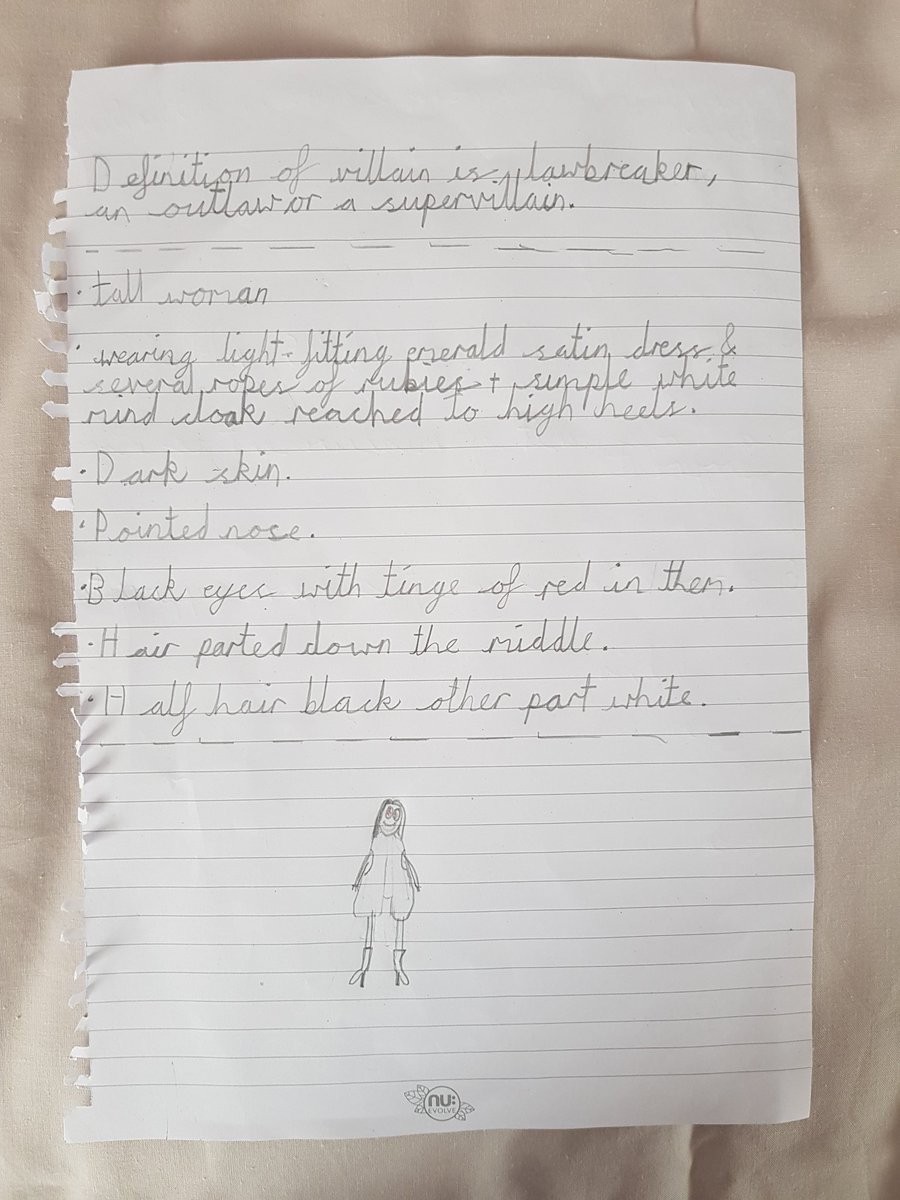 Definition of villain is lawbreaker,
an outlaw or a supervillain.
· tall woman
· wearing tight-fitting emerald satin dress &
several ropes of rubies + simple white
mind cloak reached to high heels.
· Dark skin.
· Pointed nose.
· Black eyes with tinge of red in them.
· Hair parted down the middle.
· Half hair black other part white.
nu:
EVOLVE